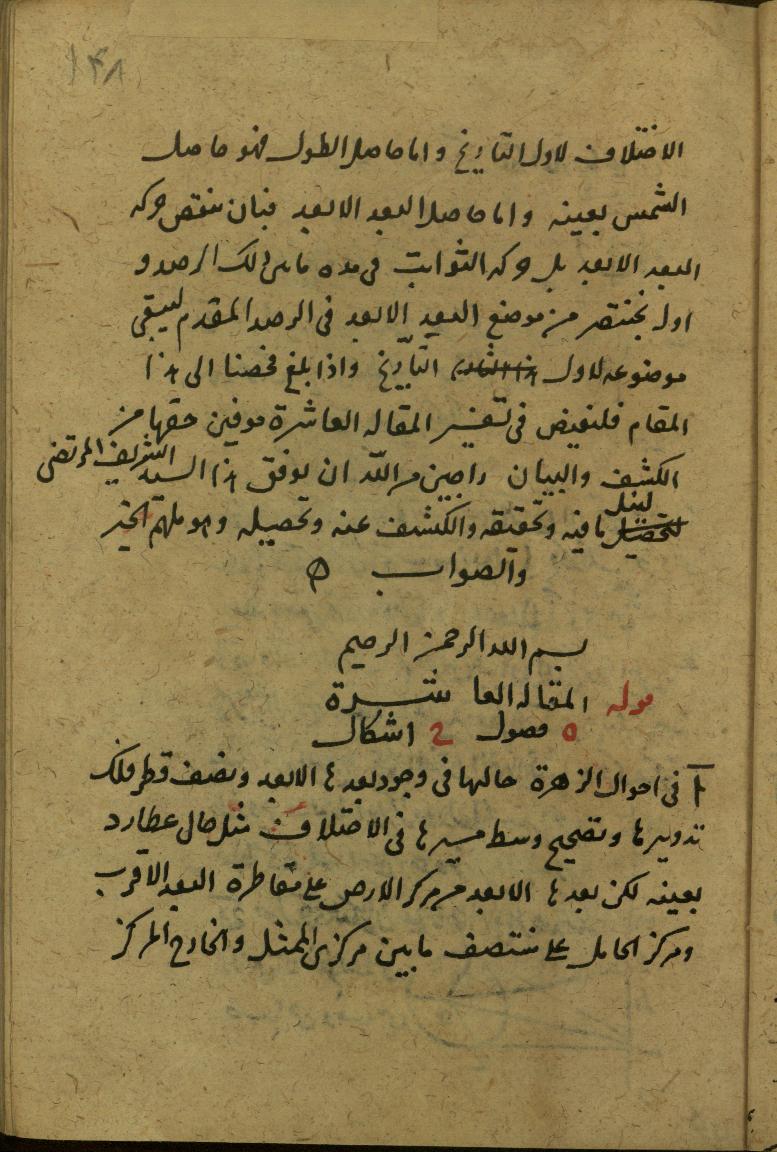 ١٣٨
الاختلاف لاول التاريخ واما حاصل الطول فهو حاصل
الشمس بعينه واما حاصل البعد الابعد فبان ننقص حركه
البعد الابعد بل حركه الثوابت فى مده ما بين ذلك الرصد و
اول بختنصر من موضع البعد الابعد فى الرصد المقدم ليبقى
موضوعه لاول التاريخ واذا بلغ فحصنا الى هذا
المقام فلنفيض فى تفسير المقاله العاشرة موفين حقها من
الكشف والبيان راجين من الله ان يوفق هذا السيد الشريف المرتضى
لنيل ما فيه وتحقيقه والكشف عنه وتحصيله وهو ملهم الخير
والصواب ه
بسم الله الرحمن الرحيم
قوله المقاله العاشرة
ه فصول ح اشكال
آ فى احوال الزهرة حالها فى وجود بعدها الابعد ونصف قطر فلك
تدويرها وتصحيح وسط مسيرها فى الاختلاف مثل حال عطارد
بعينه لكن بعدها الابعد من مركز الارض على مقاطرة البعد الاقرب
ومركز الحامل على منتصف ما بين مركزى الممثل والخارج المركز